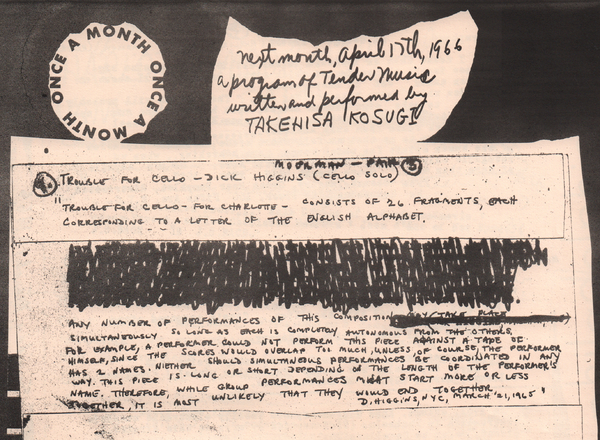 ONCE A MONTH ONCE A MONTH
next month, April 17th, 1966
a program of Tender Music
written and performed by
TAKEHISA KOSUGI
MOORMAN - PAIK 3
4. TROUBLE FOR CELLO - DICK HIGGINS (CELLO SOLO)
"TROUBLE FOR CELLO - FOR CHARLOTTE - CONSISTS OF 26 FRAGMENTS, EACH
CORRESPONDING TO A LETTER OF THE ENGLISH ALPHABET.
ANY NUMBER OF PERFORMANCES OF THIS COMPOSITION MAY TAKE PLACE
SIMULTANEOUSLY SO LONG AS EACH IS COMPLETELY AUTONOMOUS FROM THE OTHERS,
FOR EXAMPLE, A PERFORMER COULD NOT PERFORM THIS PIECE AGAINST A TAPE OF
HIMSELF, SINCE THE SCORES WOULD OVERLAP TOO MUCH, UNLESS, OF COURSE, THE PERFORMER
HAS 2 NAMES. NIETHER SHOULD SIMULTANEOUS PERFORMANCES BE COORDINATED IN ANY
WAY. THIS PIECE IS LONG OR SHORT DEPENDING ON THE LENGTH OF THE PERFORMER'S
NAME. THEREFORE, WHILE GROUP PERFORMANCES MIGHT START MORE OR LESS
TOGETHER, IT IS MOST UNLIKELY THAT THEY WOULD END TOGETHER.
D. HIGGINS, NYC, MARCH 21, 1965"